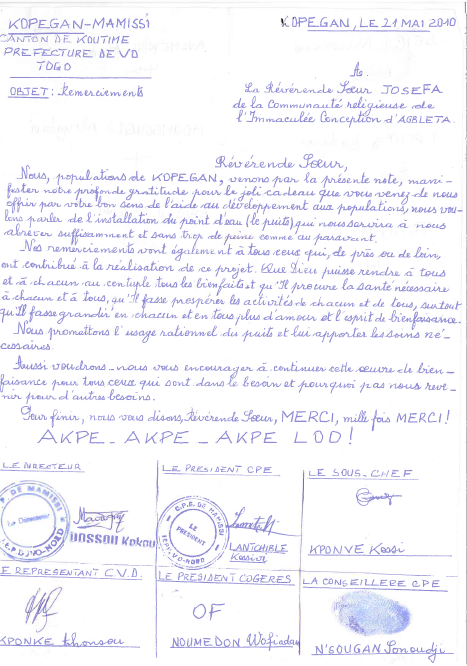 KOPEGAN-MAMISSI
CANTON DE KOUTIME
PREFECTURE DE VO
TOGO
OBJET : Remerciements
KOPEGAN, LE 21 MAI 2010
A
La Révérende Sœur JOSEFA
de la Communauté religieuse de
l'Immaculée Conception d'AGBLETA.
Révérende Sœur,
Nous, populations de KOPEGAN, venons par la présente note, mani-
fester notre profonde gratitude pour le joli cadeau que vous venez de nous
offrir par votre bon sens de l'aide au développement aux populations, nous vou-
lons parler de l'installation du point d'eau (le puits) qui nous servira à nous
abréver suffisamment et sans trop de peine comme au paravant.
Nos remerciements vont également à tous ceux qui, de près ou de loin,
ont contribué à la réalisation de ce projet. Que Dieu puisse rendre à tous
et à chacun au centuple tous les bienfaits et qu'Il procure la santé nécessaire
à chacun et à tous, qu'Il fasse prospérer les activités de chacun et de tous, surtout
qu'Il fasse grandir en chacun et en tous plus d'amour et l'esprit de bienfaisance.
Nous promettons l'usage rationnel du puits et lui apporter les soins né-
cessaires.
Aussi voudrons-nous vous encourager à continuer cette œuvre de bien-
faisance pour tous ceux qui sont dans le besoin et pourquoi pas nous reve-
nir pour d'autres besoins.
Pour finir, nous vous disons, Révérende Sœur, MERCI, mille fois MERCI !
AKPE - AKPE - AKPE LOO !
LE DIRECTEUR
P. DE MAMISSI
Le Directeur
VO-NORD
DOSSOU Kokou
LE PRESIDENT CPE
C.P.E. DE MAMISSI
LE PRESIDENT
VO-NORD
LANTCHIBLE
Kossivi
LE SOUS-CHEF
KPONVE Kossi
E REPRESENTANT C.V.D.
KPONKE
LE PRESIDENT COGERES
OF
NOUMEDON
LA CONSEILLERE CPE
N'SOUGAN